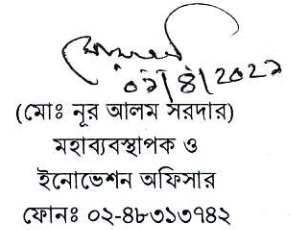 ০১/৪/২০২১
(মোঃ নূর আলম সরদার)
মহাব্যবস্থাপক ও
ইনোভেশন অফিসার
ফোনঃ ০২-৪৮৩১৩৭৪২